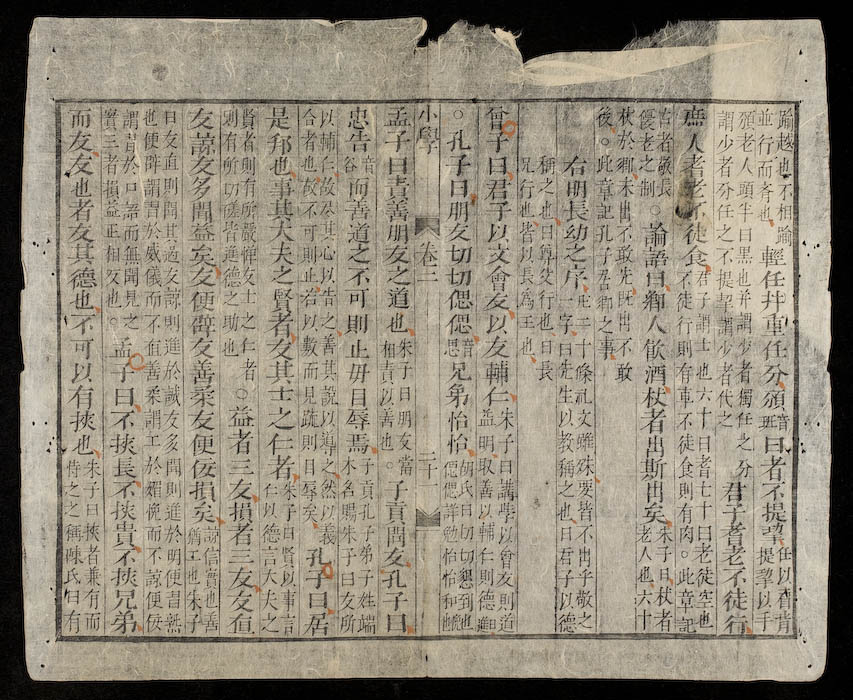 踰越也不相踰並行而齊也輕任幷重任分頒音班白者不提挈任以肩背提挈以手
頒老人頭半白黑也幷謂少者獨任之分謂少者分任之不提挈謂少者代之君子耆老不徒行
庶人耆老不徒食君子謂士也六十曰耆七十曰老徒空也不徒行則有車不徒食則有肉。此章記
古者敬長優老之制。論語曰鄉人飮酒杖者出斯出矣朱子曰杖者老人也六十
杖於鄉未出不敢先旣出不敢後。此章記孔子居鄉之事
右明長幼之序凡二十條禮文雖殊要皆不出乎敬之一字曰先生以敎稱之也曰君子以德
稱之也曰尊以行也曰長兄行也皆以長爲主也
曾子曰君子以文會友以友輔仁朱子曰講學以會友則道益明取善以輔仁則德日進
。孔子曰朋友切切偲偲音思兄弟怡怡胡氏曰切切懇到也偲偲詳勉也怡怡和也
小學 卷二 二十一
孟子曰責善朋友之道也朱子曰朋友當相責以善也。子貢問友孔子曰
忠告音谷而善道之不可則止毋自辱焉子貢孔子弟子姓端木名賜朱子曰友所
以輔仁故盡其心以告之善其說以道之然以義合者也故不可則止若以數而見疏則自辱矣孔子曰居
是邦也事其大夫之賢者友其士之仁者朱子曰賢以事言仁以德言大夫之
賢者則有所嚴憚友士之仁者則有所切磋皆進德之助也。益者三友損者三友友直
友諒友多聞益矣友便辟友善柔友便佞損矣諒信實也善爲工也朱子
曰友直則聞其過友諒則進於誠友多聞則進於明便習熟也便辟謂習於威儀而不直善柔謂工於媚悅而不諒便佞
謂習於口語而無聞見之實三者損益正相反也。孟子曰不挾長不挾貴不挾兄弟
而友友也者友其德也不可以有挾也朱子曰挾者兼有而恃之之稱陳氏曰有